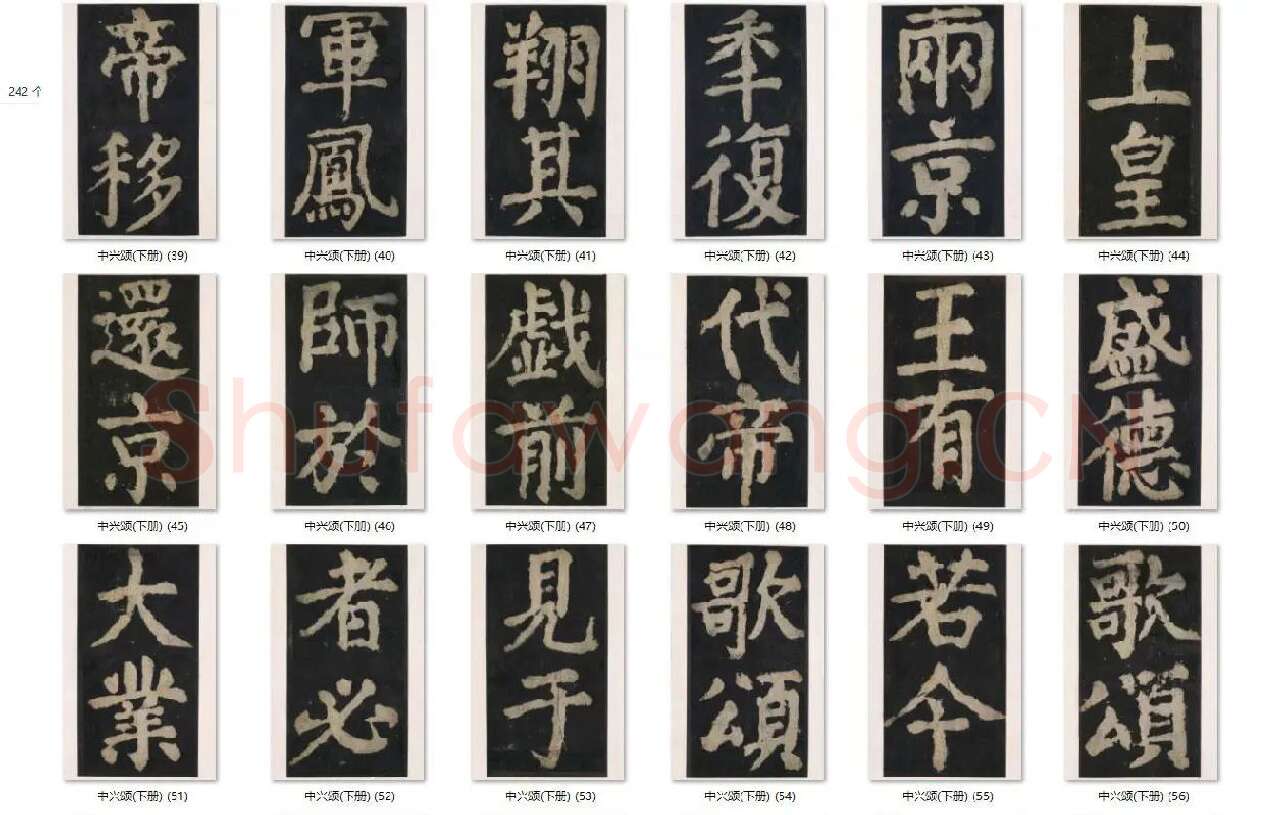 242 个
帝 軍 翔 秊 兩 上
移 鳳 其 復 京 皇
中兴颂(下册) (39) 中兴颂(下册) (40) 中兴颂(下册) (41) 中兴颂(下册) (42) 中兴颂(下册) (43) 中兴颂(下册) (44)
還 師 戯 代 王 盛
京 於 前 帝 有 德
Shufawang.CN
中兴颂(下册) (45) 中兴颂(下册) (46) 中兴颂(下册) (47) 中兴颂(下册) (48) 中兴颂(下册) (49) 中兴颂(下册) (50)
大 者 見 歌 若 歌
業 必 于 頌 今 頌
中兴颂(下册) (51) 中兴颂(下册) (52) 中兴颂(下册) (53) 中兴颂(下册) (54) 中兴颂(下册) (55) 中兴颂(下册) (56)